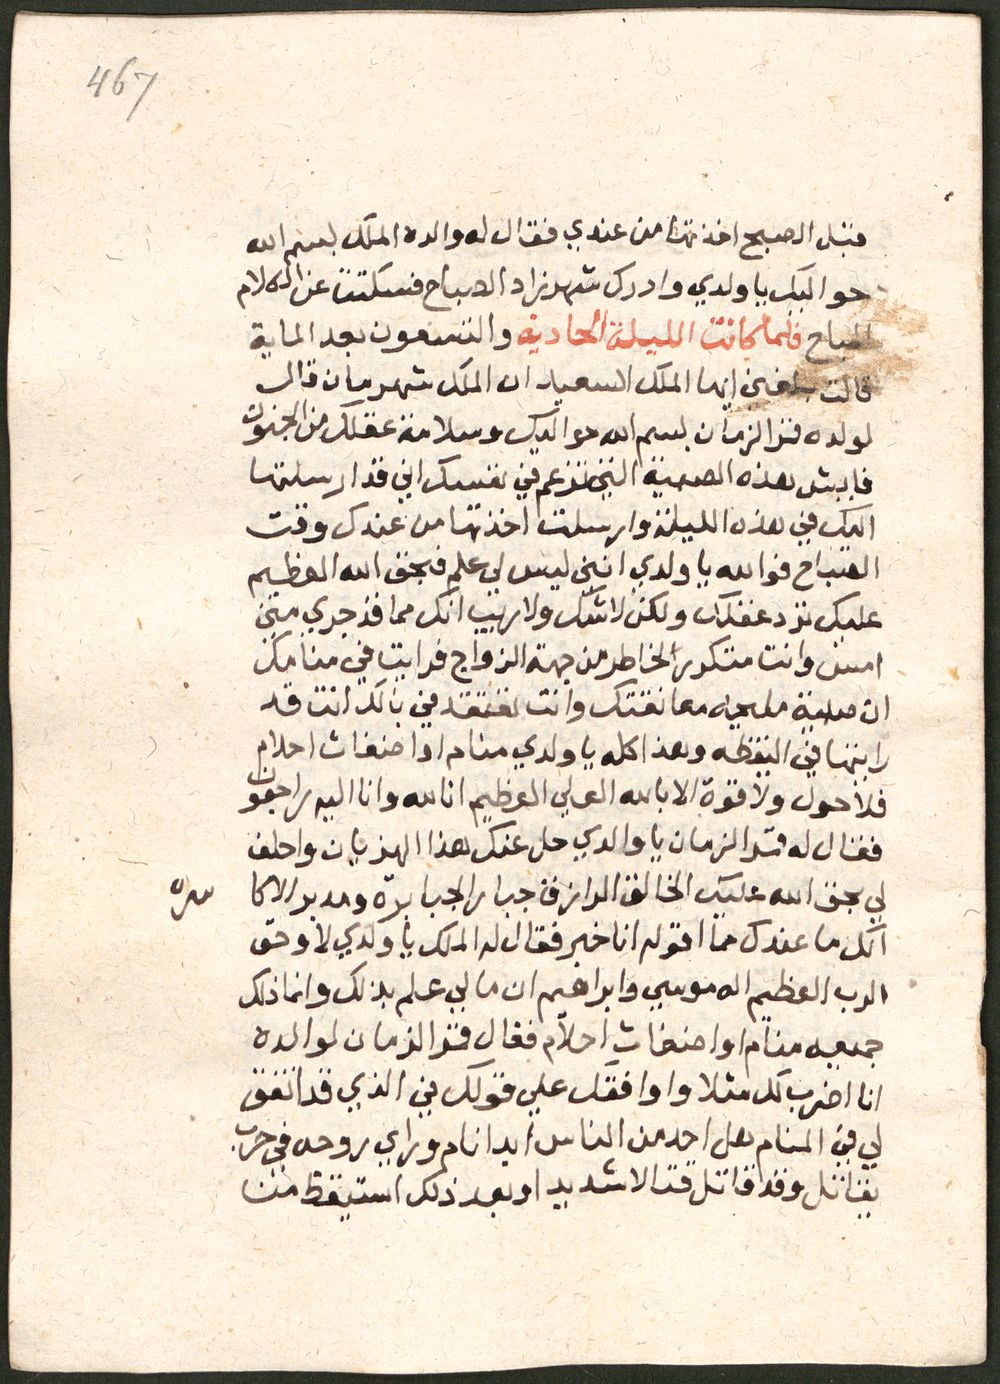 467
قبل الصبح اخذتها من عندي فقال له والده الملك بسم الله
حواليك يا ولدي وادرك شهرزاد الصباح فسكتت عن الكلام
المباح فلما كانت الليلة الحادية والتسعون بعد الماية
قالت بلغني ايها الملك السعيد ان الملك شهرمان قال
لولده قمر الزمان بسم الله حواليك وسلامة عقلك من الجنون
فايش هذه الصبية التي تزعم في نفسك اني قد ارسلتها
اليك في هذه الليلة وارسلت اخذتها من عندك وقت
الصباح فوالله يا ولدي انني ليس لي علم فبحق الله العظيم
عليك ترد عقلك ولكن لا شك ولا ريب انك مما قد جري مني
امس وانت متكدر الخاطر من جهة الزواج فرايت في منامك
ان صبية مليحه معانقتك وانت تعتقد في بالك انت قد
رايتها في اليقظه وهذا كله يا ولدي منام او اضغاث احلام
فلا حول ولا قوة الا بالله العلي العظيم انا لله وانا اليه راجعون
فقال له قمر الزمان يا والدي خل عنك هذا الهذيان واحلف
لي بحق الله عليك الخالق الرازق جبار الجبابرة ومدبر الاكا
سره
انك ما عندك مما اقوله انا خبر فقال له الملك يا ولدي لا وحق
الرب العظيم اله موسي وابراهيم ان مالي علم بذلك وانما ذلك
جميعه منام او اضغاث احلام فقال قمر الزمان لوالده
انا اضرب لك مثلا واوافقك علي قولك في الذي قد اتفق
لي في المنام هل احد من الناس ابدا نام وراي روحه في حرب
يقاتل وقد قاتل قتالا شديدا وبعد ذلك استيقظ من